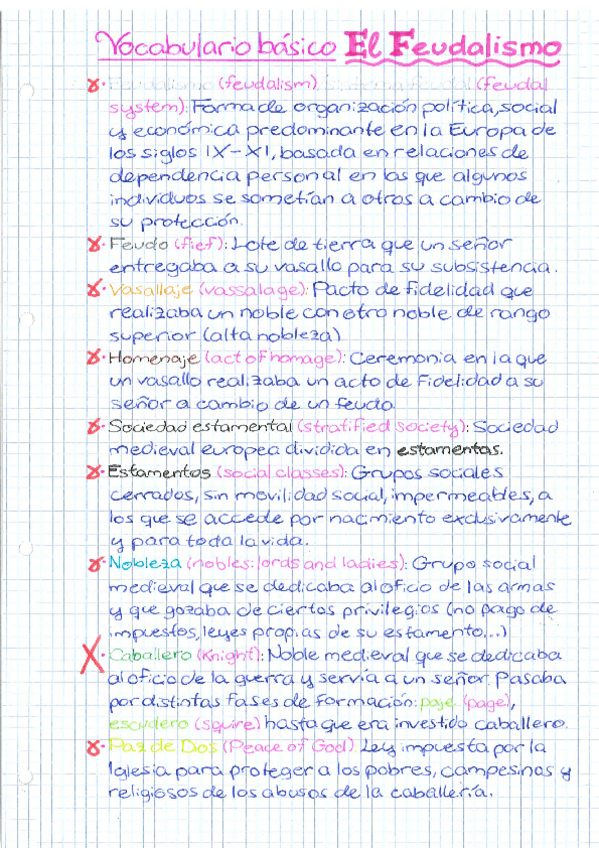 Vocabulario básico El Feudalismo
Feudalismo (feudalism) Sistema feudal (feudal
system): Forma de organización política, social
y económica predominante en la Europa de
los siglos IX-XI, basada en relaciones de
dependencia personal en las que algunos
individuos se sometían a otros a cambio de
su protección.
Feudo (fief): Lote de tierra que un señor
entregaba a su vasallo para su subsistencia.
Vasallaje (vassalage): Pacto de fidelidad que
realizaba un noble con otro noble de rango
superior (alta nobleza)
Homenaje (act of homage): Ceremonia en la que
un vasallo realizaba un acto de Fidelidad a su
señor a cambio de un feudo.
Sociedad estamental (stratified society): Sociedad
medieval europea dividida en estamentas.
Estamentos (social classes): Grupos sociales
cerrados, sin movilidad social, impermeables, a
los que se accede por nacimiento exclusivamente
y para toda la vida.
Nobleza (nobles: lords and ladies): Grupo social
medieval que se dedicaba al oficio de las armas
y que gozaba de ciertos privilegios (no pago de
impuestos, leyes propias de su estamento...)
Caballero (Knight): Noble medieval que se dedicaba
al oficio de la guerra y servía a un señor. Pasaba
por distintas fases de formación: paje (page),
escudero (squire) hasta que era investido caballero.
Paz de Dos (Peace of God) Ley impuesta por la
Iglesia para proteger a los pobres, campesinos y
religiosos de los abusos de la caballería.